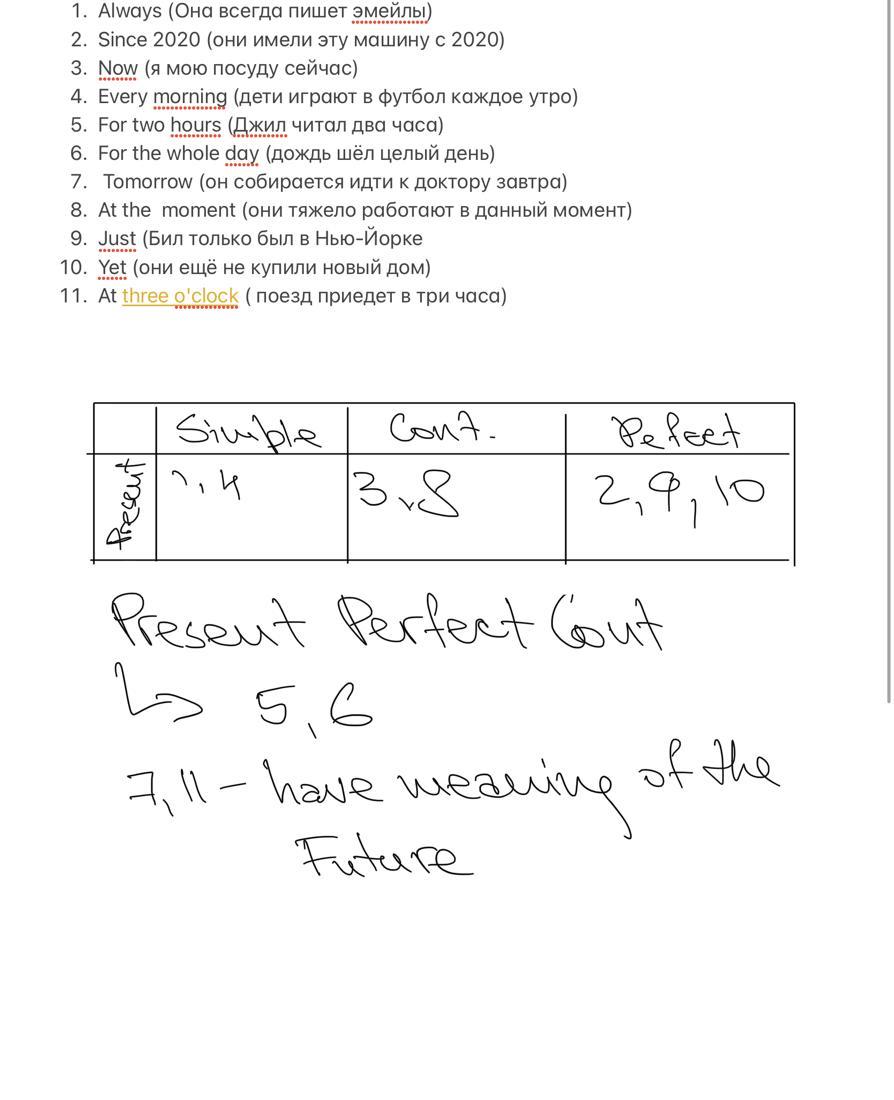 1. Always (Она всегда пишет эмейлы)
2. Since 2020 (они имели эту машину с 2020)
3. Now (я мою посуду сейчас)
4. Every morning (дети играют в футбол каждое утро)
5. For two hours (Джил читал два часа)
6. For the whole day (дождь шёл целый день)
7. Tomorrow (он собирается идти к доктору завтра)
8. At the moment (они тяжело работают в данный момент)
9. Just (Бил только был в Нью-Йорке
10. Yet (они ещё не купили новый дом)
11. At three o'clock ( поезд приедет в три часа)
Simple Cont. Pefect
Present 1, 4 3, 8 2, 9, 10
Present Perfect Cont
5, 6
7, 11 - have meaning of the
Future